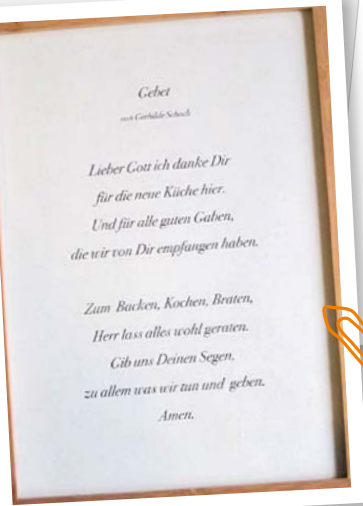 Gebet
von Gerhilde Schoch
Lieber Gott ich danke Dir
für die neue Küche hier.
Und für alle guten Gaben,
die wir von Dir empfangen haben.
Zum Backen, Kochen, Braten,
Herr lass alles wohl geraten.
Gib uns Deinen Segen,
zu allem was wir tun und geben.
Amen.